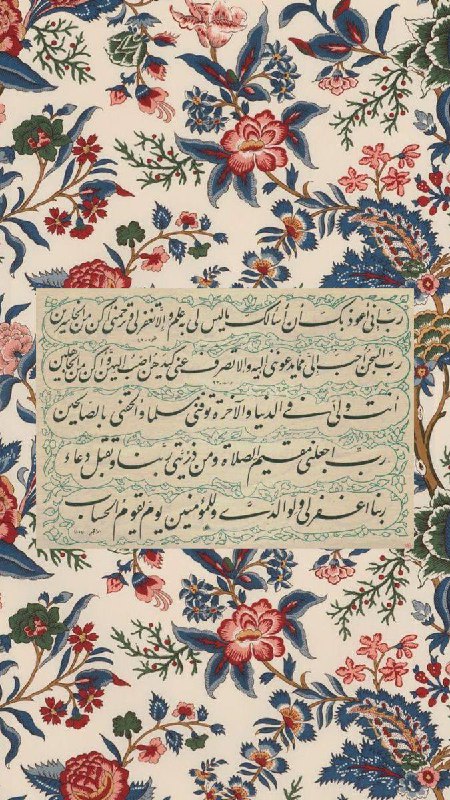 رب انی اعوذ بک أن أسألک مالیس لی به علم والا تغفرلی وترحمنی أکن من الخاسرین
رب السجن أحب الی مما یدعوننی الیه والا تصرف عنی کیدهن اصب الیهن وأکن من الجاهلین
انت ولیی فی الدنیا والآخرة توفنی مسلما والحقنی بالصالحین
رب اجعلنی مقیم الصلاة ومن ذریتی ربنا وتقبل دعاء
ربنا اغفرلی ولوالدی وللمؤمنین یوم یقوم الحساب